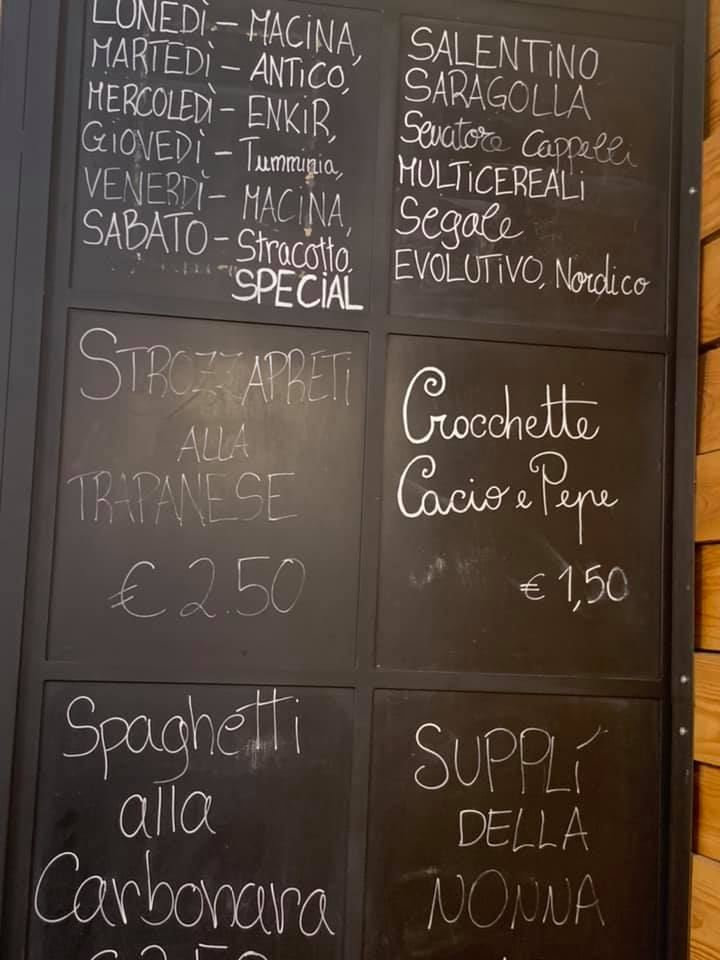 LUNEDÌ - MACINA, SALENTINO
MARTEDÌ - ANTICO, SARAGOLLA
MERCOLEDÌ - ENKIR, Senatore Cappelli
GIOVEDÌ - Tumminia, MULTICEREALI
VENERDÌ - MACINA, Segale
SABATO - Stracotto, EVOLUTIVO, Nordico
SPECIAL
STROZZAPRETI
ALLA
TRAPANESE
€ 2.50
Crocchette
Cacio e Pepe
€ 1,50
Spaghetti
alla
Carbonara
€ 2.50
SUPPLÍ
DELLA
NONNA